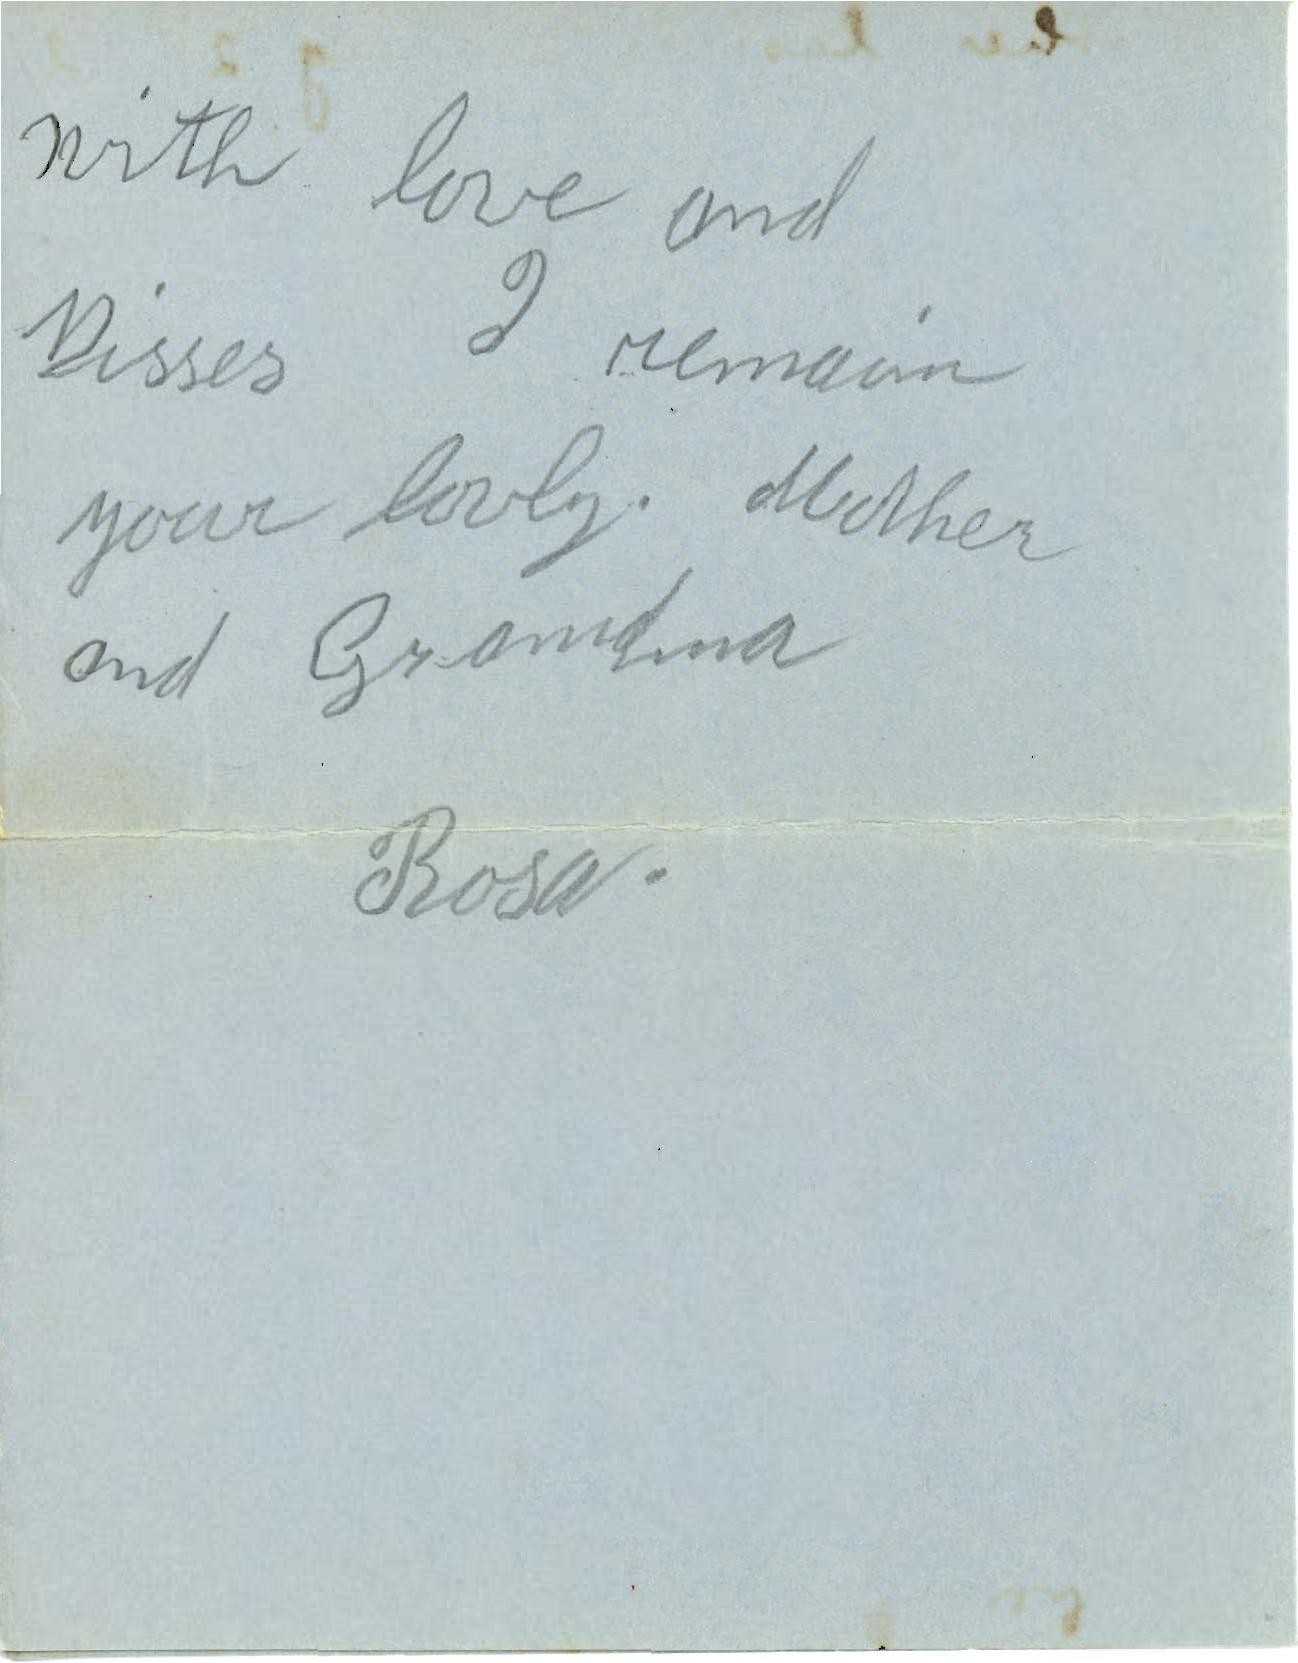 With love and
Kisses I remain
your lovly. Mother
and Grandma
Rosa.